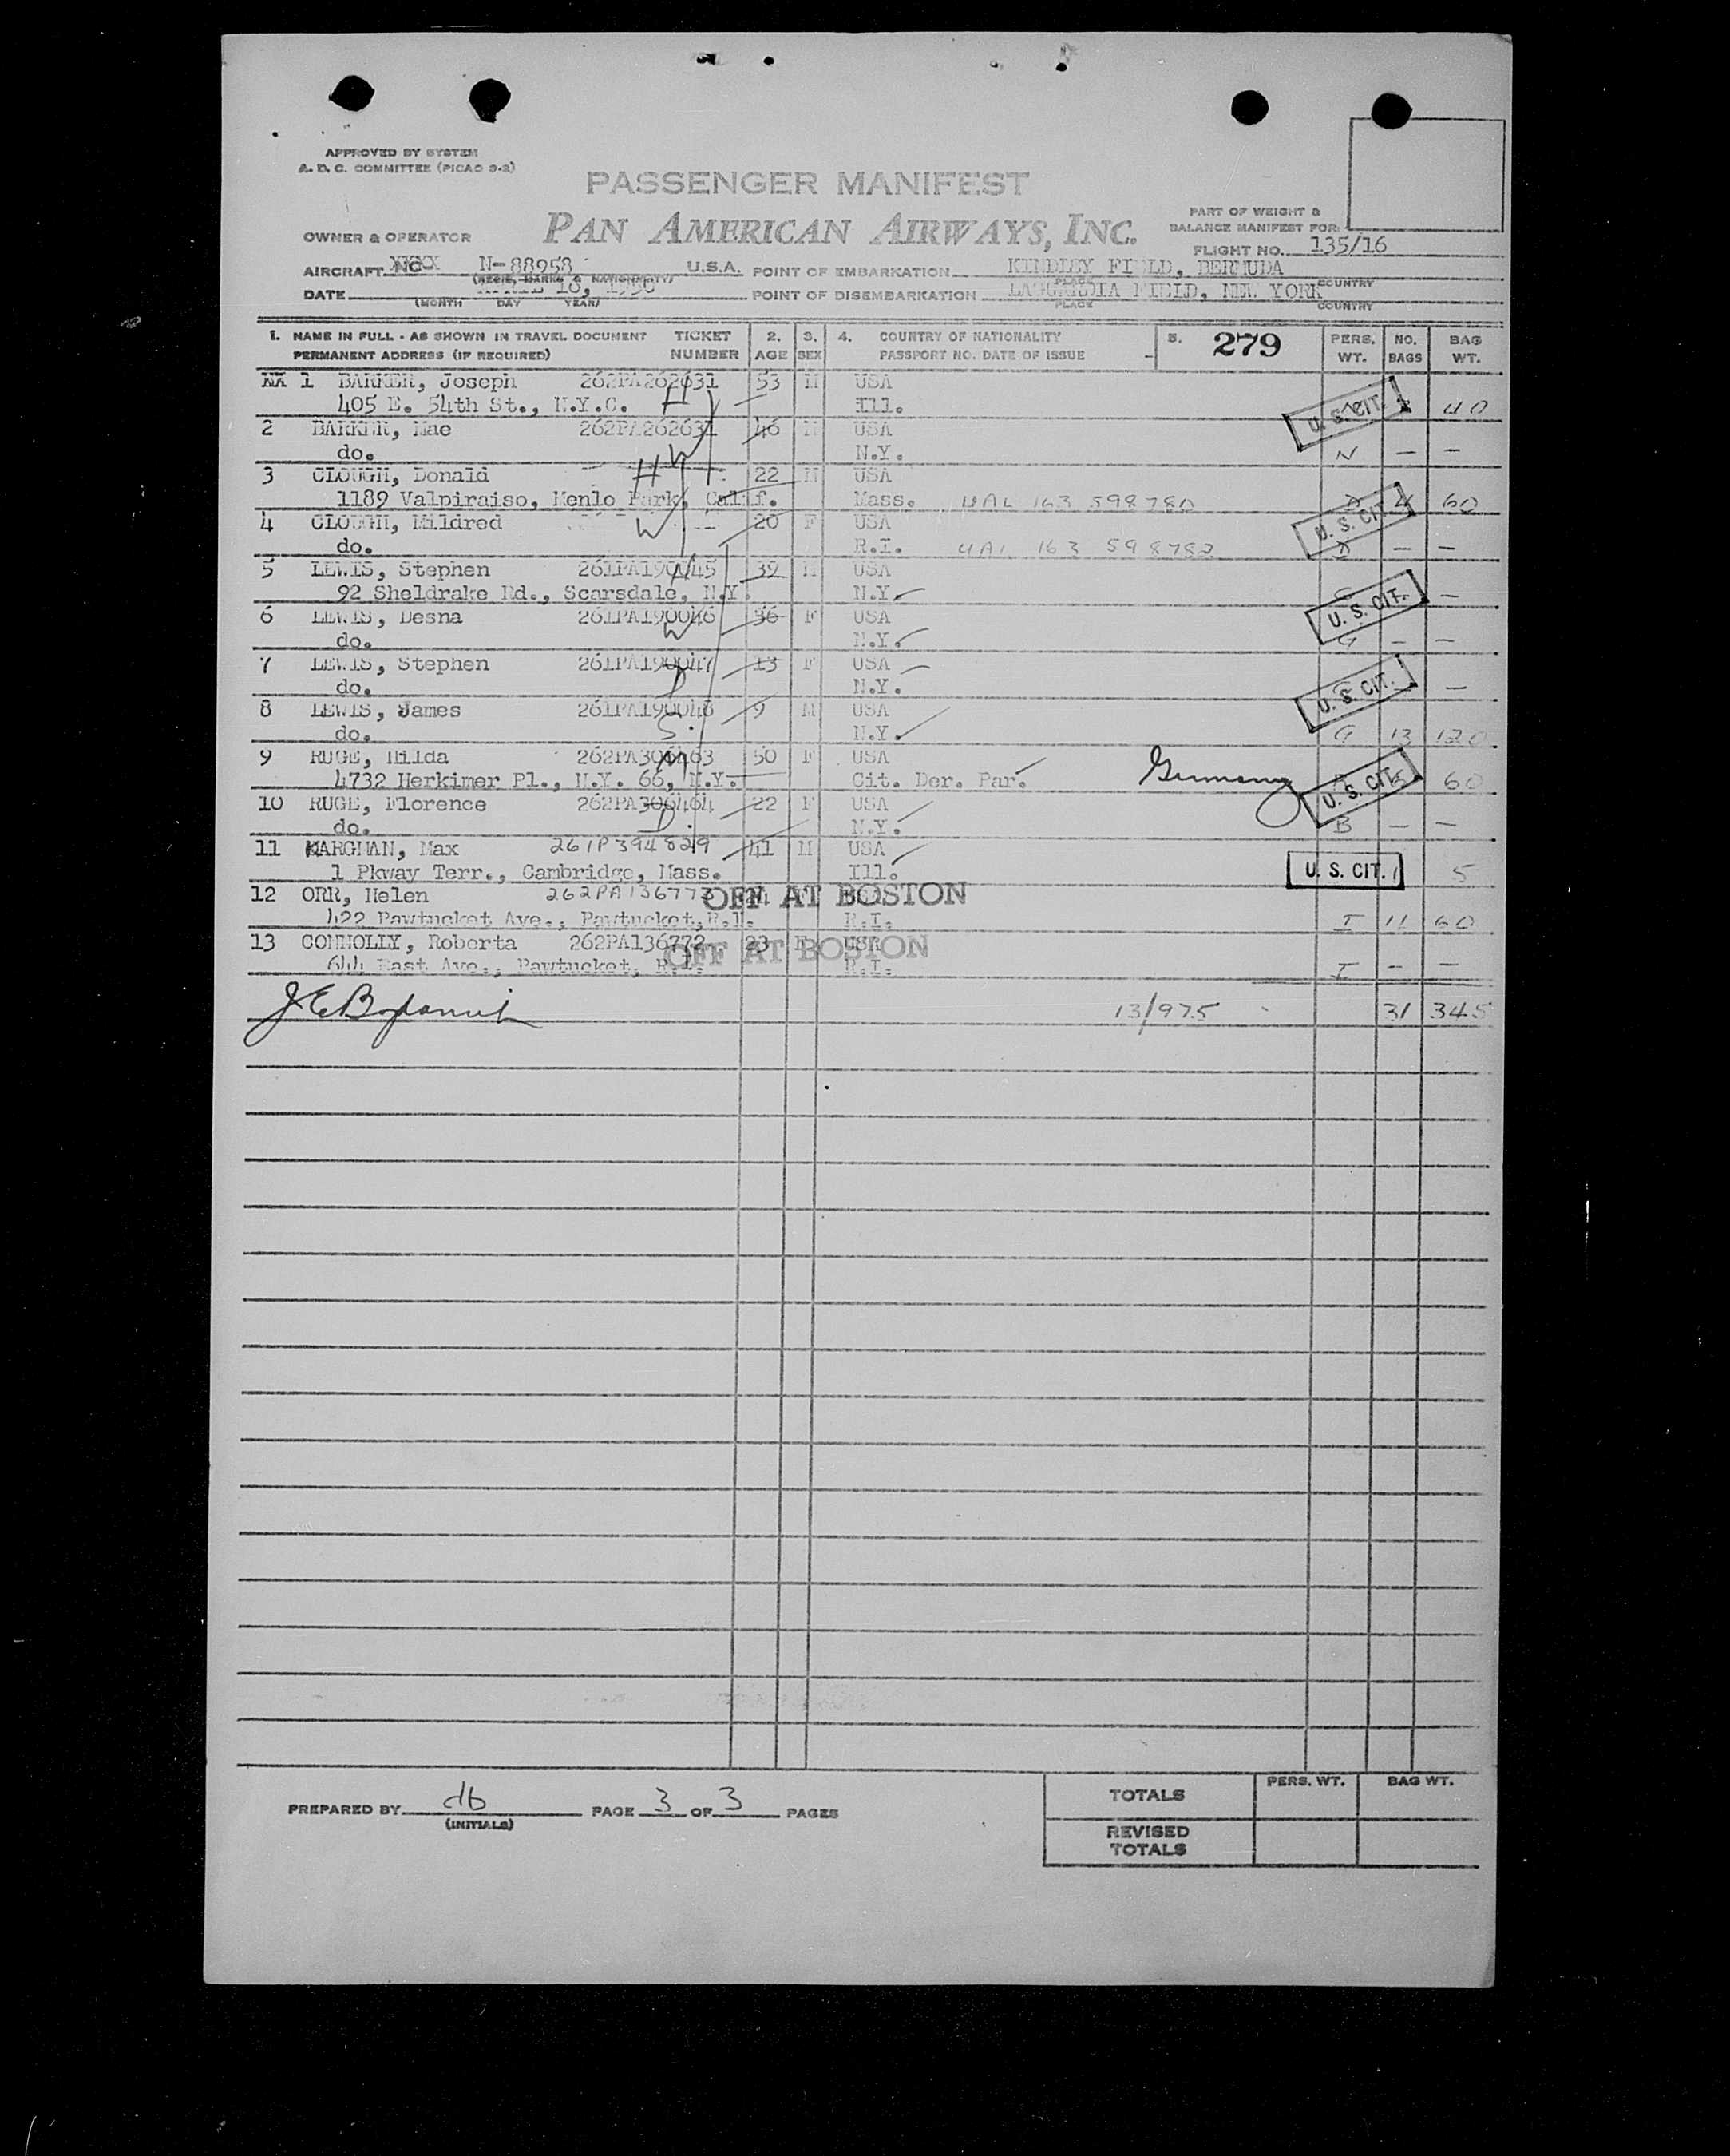 APPROVED BY SYSTEM
A. D. C. COMMITTEE (PICAO 9-2)
PASSENGER MANIFEST
PAN AMERICAN AIRWAYS, INC.
PART OF WEIGHT &
BALANCE MANIFEST FOR:
OWNER & OPERATOR
FLIGHT NO. 135/16
AIRCRAFT NC XXXX N-88958 U.S.A. POINT OF EMBARKATION KINDLEY FIELD, BERMUDA
(REGIS. MARKS & NATIONALITY) PLACE COUNTRY
DATE APRIL 16, 1950 POINT OF DISEMBARKATION LAGUARDIA FIELD, NEW YORK
(MONTH DAY YEAR) PLACE COUNTRY
1. NAME IN FULL - AS SHOWN IN TRAVEL DOCUMENT TICKET 2. 3. 4. COUNTRY OF NATIONALITY 5. 279 PERS. NO. BAG
PERMANENT ADDRESS (IF REQUIRED) NUMBER AGE SEX PASSPORT NO. DATE OF ISSUE WT. BAGS WT.
1 BARKER, Joseph 262PA262631 53 M USA
405 E. 54th St., N.Y.C. H Ill. U. S. CIT. 40
2 BARKER, Mae 262PA262631 46 USA
do. W N.Y. N — —
3 CLOUGH, Donald H 22 M USA
1189 Valpiraiso, Menlo Park, Calif. Mass. UAL 163 598780 4 60
4 CLOUGH, Mildred W 20 F USA U. S. CIT.
do. R.I. UAL 163 598782 — —
5 LEWIS, Stephen 261PA190045 39 M USA
92 Sheldrake Rd., Scarsdale, N.Y. N.Y. —
6 LEWIS, Desna 261PA190046 36 F USA U. S. CIT.
do. W N.Y. G — —
7 LEWIS, Stephen 261PA190047 13 F USA
do. N.Y. U. S. CIT. —
8 LEWIS, James 261PA190048 9 M USA
do. S. N.Y. G 13 120
9 RUGE, Hilda 262PA306463 50 F USA
4732 Herkimer Pl., N.Y. 66, N.Y. Cit. Der. Par. Germany U. S. CIT. 60
10 RUGE, Florence 262PA306464 22 F USA
do. D. N.Y. B — —
11 MARGMAN, Max 261P394829 41 M USA
1 Pkway Terr., Cambridge, Mass. Ill. U. S. CIT. 1 5
12 ORR, Helen 262PA136773 OFF AT BOSTON
422 Pawtucket Ave., Pawtucket, R.I. R.I. I 11 60
13 CONNOLLY, Roberta 262PA136772 23 F USA
OFF AT BOSTON
644 East Ave., Pawtucket, R.I. R.I. I — —
13/975 31 345
PREPARED BY db PAGE 3 OF 3 PAGES
(INITIALS)
TOTALS PERS. WT. BAG WT.
REVISED
TOTALS